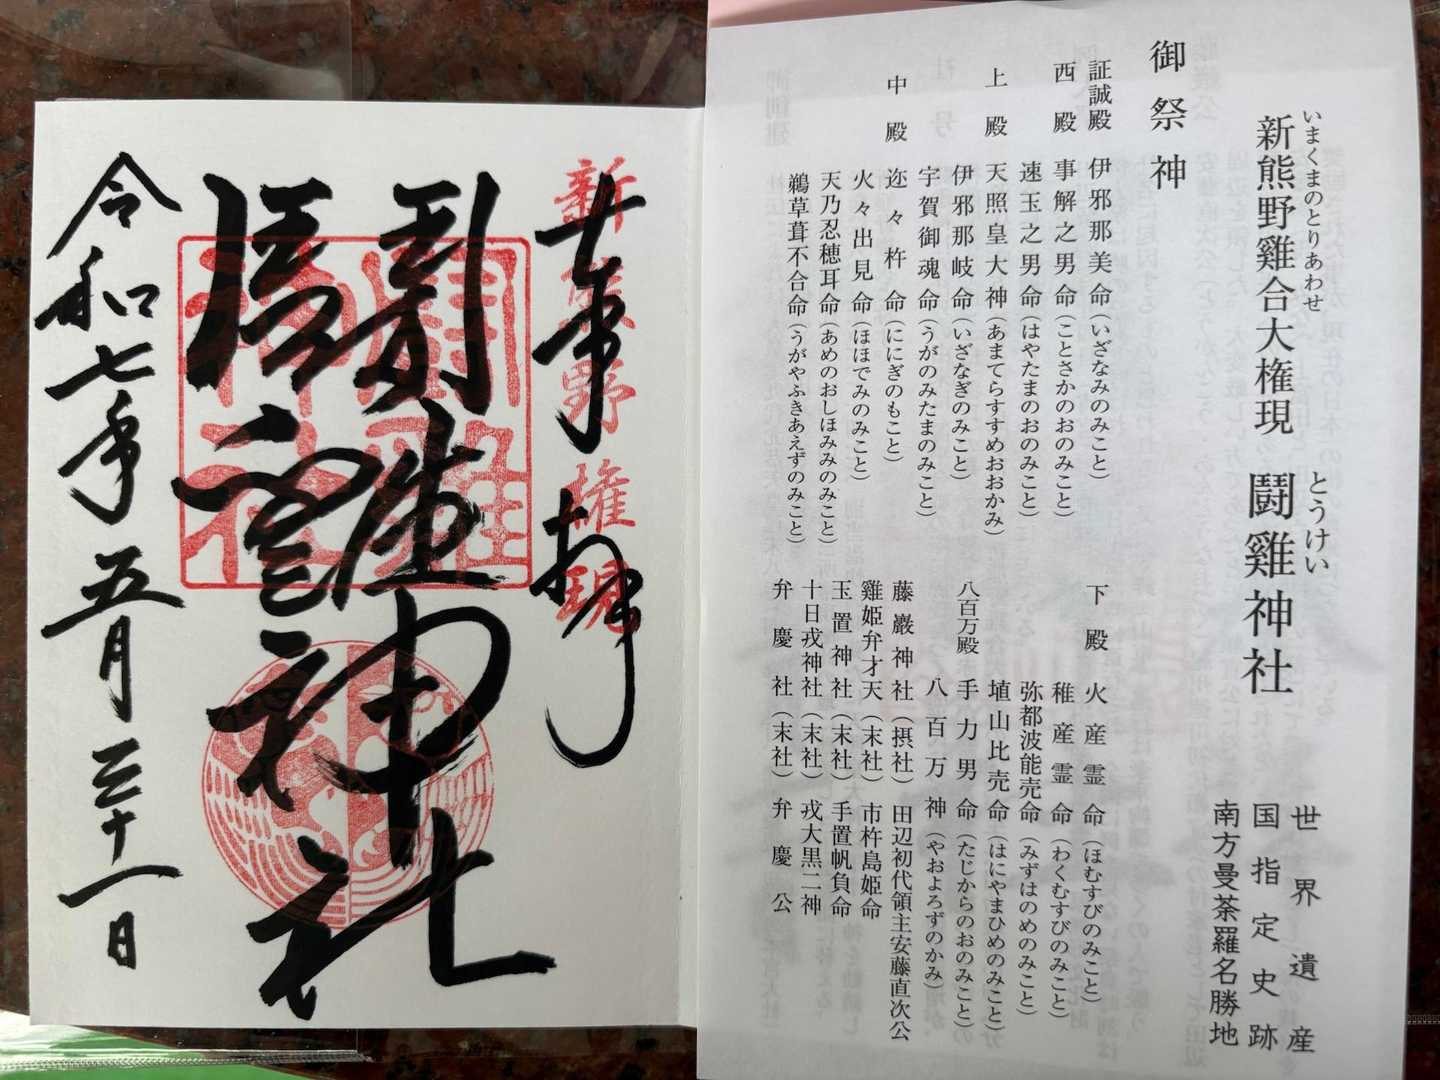 いまくまのとりあわせ とうけい
新熊野雞合大権現 闘雞神社
世界遺産
国指定史跡
南方曼荼羅名勝地
御祭神
証誠殿 伊邪那美命（いざなみのみこと）
西殿 事解之男命（ことさかのおのみこと）
速玉之男命（はやたまのおのみこと）
上殿 天照皇大神（あまてらすすめおおかみ）
伊邪那岐命（いざなぎのみこと）
宇賀御魂命（うがのみたまのみこと）
中殿 迩々杵命（ににぎのもこと）
火々出見命（ほほでみのみこと）
天乃忍穂耳命（あめのおしほみみのみこと）
鵜草葺不合命（うがやふきあえずのみこと）
下殿 火産霊命（ほむすびのみこと）
稚産霊命（わくむすびのみこと）
弥都波能売命（みずはのめのみこと）
埴山比売命（はにやまひめのみこと）
八百万殿 手力男命（たじからのおのみこと）
八百万神（やおよろずのかみ）
藤巖神社（摂社） 田辺初代領主安藤直次公
雞姫弁才天（末社） 市杵島姫命
玉置神社（末社） 手置帆負命
十日戎神社（末社） 戎大黒二神
弁慶社（末社） 弁慶公
奉拝
新熊野権現
闘雞神社
藤巖神社
闘雞神社
令和七年五月三十一日